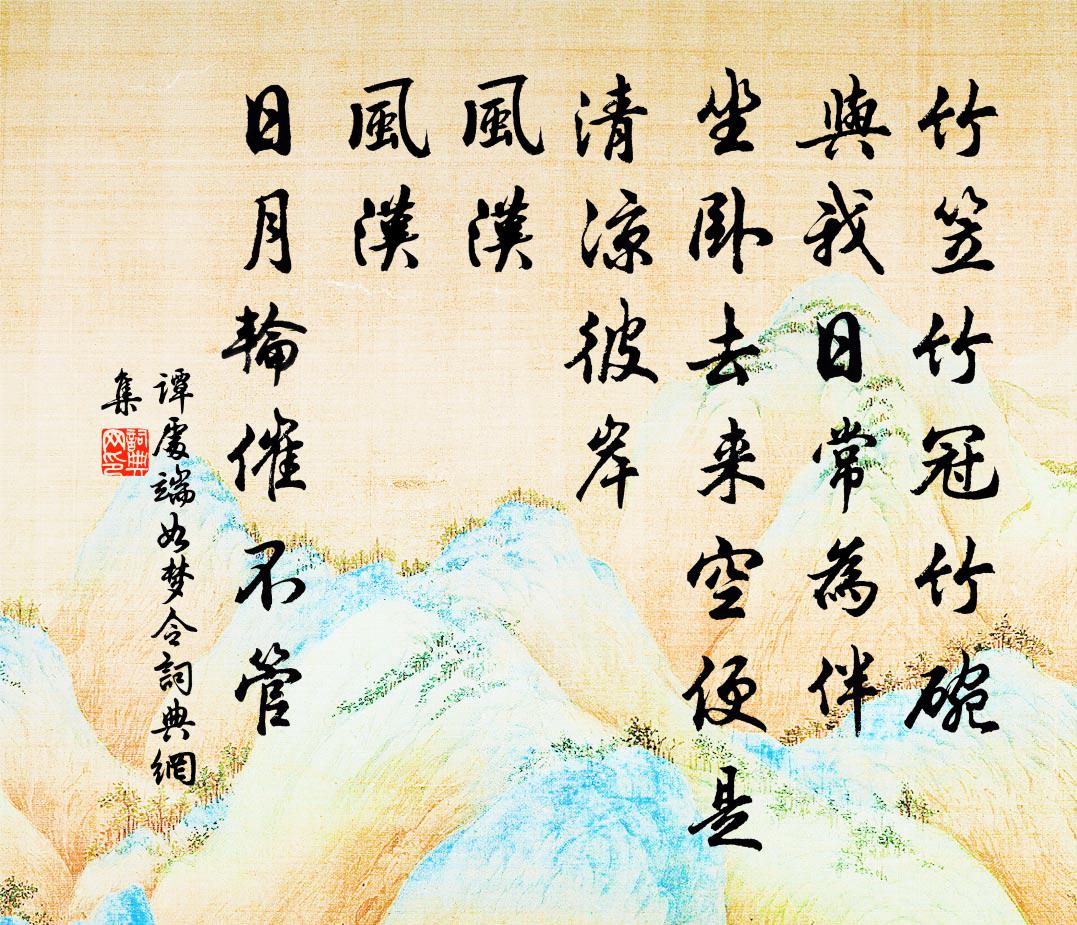 竹笠竹冠竹碗
與我日常為伴
坐卧去来空便是
清涼彼岸
風漢
風漢
日月輪催不管
譚處端如梦令詞典網
集
詞典
网印